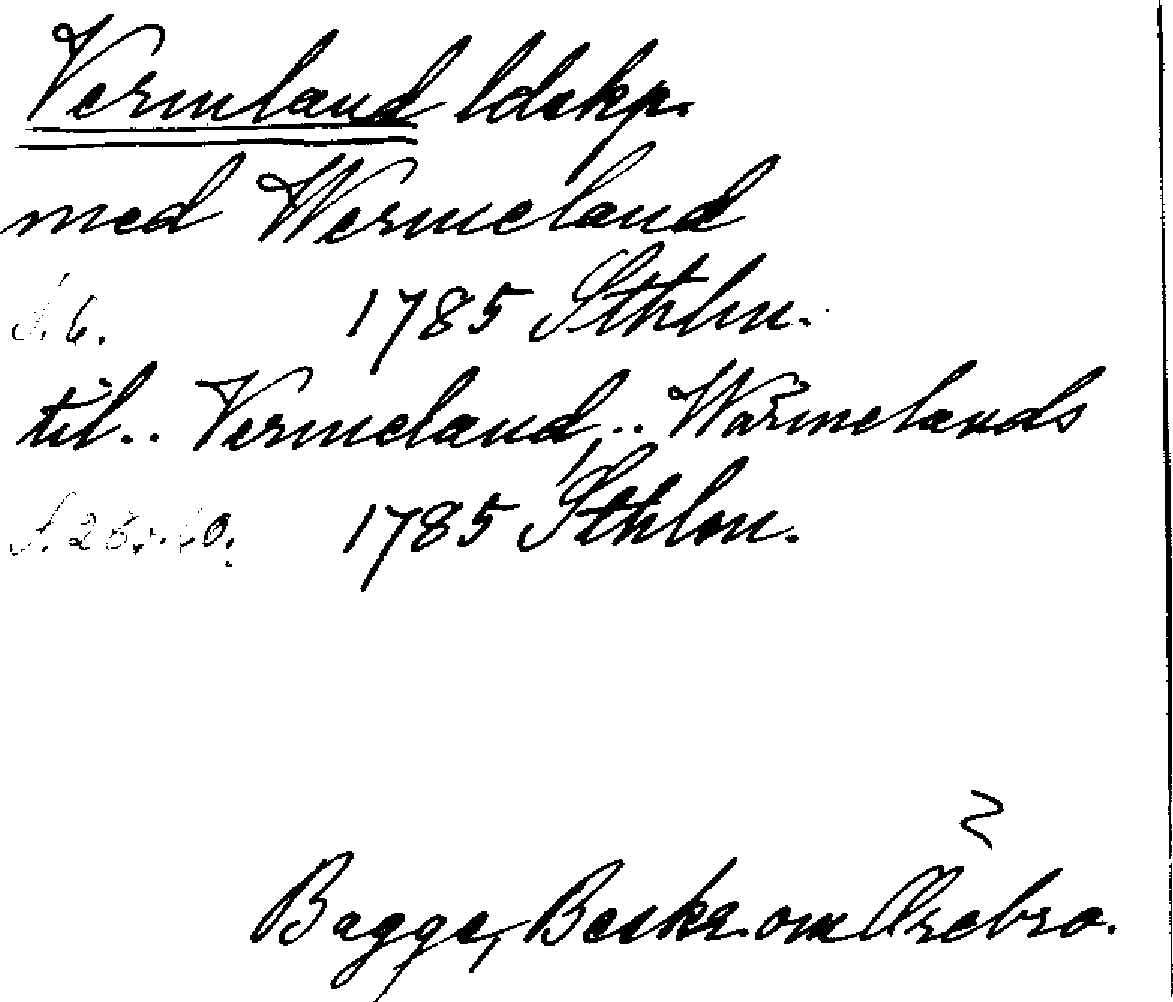 Vermland ldskp.
med Wermeland
S. 6. 1785 Sthlm.
til.. Vermeland... Wärmelands
S. 28. o. 60. 1785 Sthlm.
Bagge, Beskr. om Örebro.